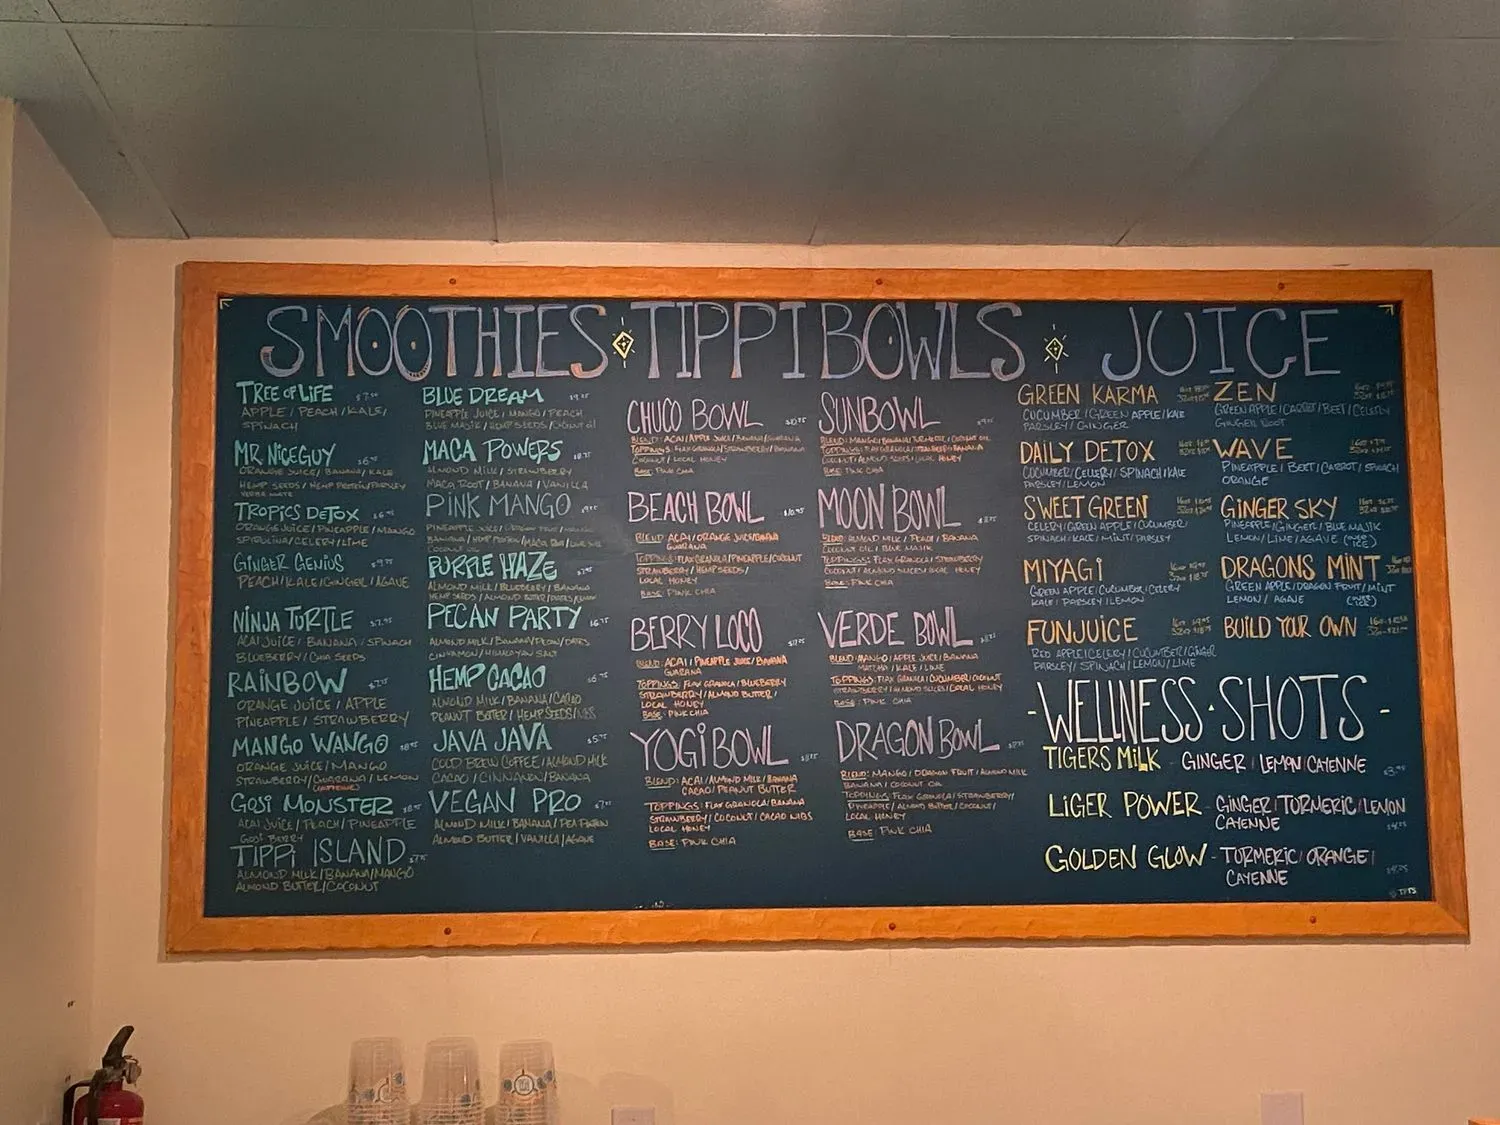 SMOOTHIES TIPPI BOWLS JUICE
TREE OF LIFE
APPLE / PEACH / KALE /
SPINACH
MR NICE GUY
ORANGE JUICE / BANANA / KALE
HEMP SEEDS / HEMP PROTEIN / PARSLEY
YERBA MATE
TROPICS DETOX
ORANGE JUICE / PINEAPPLE / MANGO
SPIRULINA / CELERY / LIME
GINGER GENIUS
PEACH / KALE / GINGER / AGAVE
NINJA TURTLE $7.95
ACAI JUICE / BANANA / SPINACH
BLUEBERRY / CHIA SEEDS
RAINBOW
ORANGE JUICE / APPLE
PINEAPPLE / STRAWBERRY
MANGO WANGO
ORANGE JUICE / MANGO
STRAWBERRY / GUARANA / LEMON
GOJI MONSTER
ACAI JUICE / PEACH / PINEAPPLE
GOJI BERRY
TIPPI ISLAND
ALMOND MILK / BANANA / MANGO
ALMOND BUTTER / COCONUT
BLUE DREAM
PINEAPPLE JUICE / MANGO / PEACH
BLUE MAJIK / HEMP SEEDS / COCONUT OIL
MACA POWERS
ALMOND MILK / STRAWBERRY
MACA ROOT / BANANA / VANILLA
PINK MANGO
PURPLE HAZE
ALMOND MILK / BLUEBERRY / BANANA
HEMP SEEDS / ALMOND BUTTER / DATES
PECAN PARTY
ALMOND MILK / BANANA / PECAN / DATES
CINNAMON / HIMALAYAN SALT
HEMP CACAO
ALMOND MILK / BANANA / CACAO
PEANUT BUTTER / HEMP SEEDS / NIBS
JAVA JAVA $5.75
COLD BREW COFFEE / ALMOND MILK
CACAO / CINNAMON / BANANA
VEGAN PRO
ALMOND MILK / BANANA / PEA PROTEIN
ALMOND BUTTER / VANILLA / AGAVE
CHUCO BOWL
BLEND: ACAI / APPLE JUICE / BANANA / GUARANA
TOPPINGS: FLAX GRANOLA / STRAWBERRY / BANANA
COCONUT / LOCAL HONEY
BASE: PINK CHIA
BEACH BOWL $10.95
BLEND: ACAI / ORANGE JUICE / BANANA
GUARANA
TOPPINGS: FLAX GRANOLA / PINEAPPLE / COCONUT
STRAWBERRY / HEMP SEEDS /
LOCAL HONEY
BASE: PINK CHIA
BERRY LOCO
BLEND: ACAI / PINEAPPLE JUICE / BANANA
GUARANA
TOPPINGS: FLAX GRANOLA / BLUEBERRY
STRAWBERRY / ALMOND BUTTER /
LOCAL HONEY
BASE: PINK CHIA
YOGI BOWL
BLEND: ACAI / ALMOND MILK / BANANA
CACAO / PEANUT BUTTER
TOPPINGS: FLAX GRANOLA / BANANA
STRAWBERRY / COCONUT / CACAO NIBS
LOCAL HONEY
BASE: PINK CHIA
SUNBOWL
BLEND: MANGO / BANANA / TURMERIC / COCONUT OIL
TOPPINGS: FLAX GRANOLA / STRAWBERRY / BANANA
COCONUT / ALMOND SLICES / LOCAL HONEY
BASE: PINK CHIA
MOON BOWL
BLEND: ALMOND MILK / PEACH / BANANA
COCONUT OIL / BLUE MAJIK
TOPPINGS: FLAX GRANOLA / STRAWBERRY
COCONUT / ALMOND SLICES / LOCAL HONEY
BASE: PINK CHIA
VERDE BOWL
BLEND: MANGO / APPLE JUICE / BANANA
MATCHA / KALE / LIME
TOPPINGS: FLAX GRANOLA / CUCUMBER / COCONUT
STRAWBERRY / ALMOND SLICES / LOCAL HONEY
BASE: PINK CHIA
DRAGON BOWL
BLEND: MANGO / DRAGON FRUIT / ALMOND MILK
BANANA / COCONUT OIL
TOPPINGS: FLAX GRANOLA / STRAWBERRY /
PINEAPPLE / ALMOND BUTTER / COCONUT /
LOCAL HONEY
BASE: PINK CHIA
GREEN KARMA
CUCUMBER / GREEN APPLE / KALE
PARSLEY / GINGER
DAILY DETOX
CUCUMBER / CELERY / SPINACH / KALE
PARSLEY / LEMON
SWEET GREEN
CELERY / GREEN APPLE / CUCUMBER
SPINACH / KALE / MINT / PARSLEY
MIYAGI
GREEN APPLE / CUCUMBER / CELERY
KALE / PARSLEY / LEMON
FUNJUICE
RED APPLE / CELERY / CUCUMBER / GINGER
PARSLEY / SPINACH / LEMON / LIME
ZEN
GREEN APPLE / CARROT / BEET / CELERY
GINGER ROOT
WAVE
PINEAPPLE / BEET / CARROT / SPINACH
ORANGE
GINGER SKY
PINEAPPLE / GINGER / BLUE MAJIK
LEMON / LIME / AGAVE (OVER ICE)
DRAGONS MINT
GREEN APPLE / DRAGON FRUIT / MINT
LEMON / AGAVE (OVER ICE)
BUILD YOUR OWN
- WELLNESS · SHOTS -
TIGERS MILK - GINGER / LEMON / CAYENNE
LIGER POWER - GINGER / TURMERIC / LEMON
CAYENNE
GOLDEN GLOW - TURMERIC / ORANGE /
CAYENNE